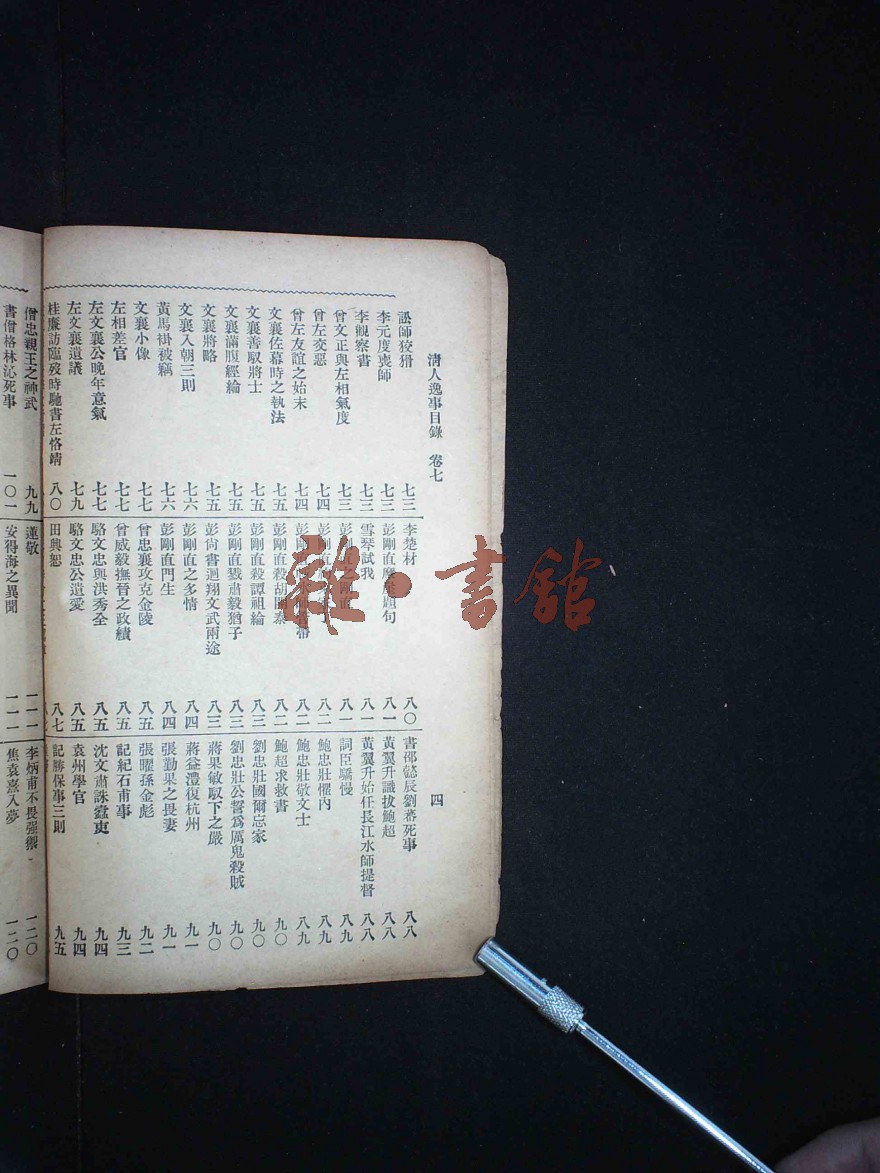 清人逸事目錄 卷七 四
訟師狡猾 七三
李元度喪師 七三
李觀察書 七三
曾文正與左相氣度 七三
曾左交惡 七四
曾左友誼之始末 七四
文襄佐幕時之執法 七五
文襄善馭將士 七五
文襄滿腹經綸 七五
文襄將略 七五
文襄入朝三則 七六
黃馬褂被竊 七六
文襄小像 七七
左相差官 七七
左文襄公晚年意氣 七七
左文襄遺議 七九
桂廉訪臨歿時馳書左恪靖 八〇
李楚材 八〇
彭剛直 題句 八一
雪琴試我 八一
彭剛直之剛直 八一
彭剛直 八二
彭剛直 八二
彭剛直殺胡開泰 八二
彭剛直殺譚祖綸 八三
彭剛直戮肅毅猶子 八三
彭尙書迴翔文武兩途 八三
彭剛直之多情 八四
彭剛直門生 八四
曾忠襄攻克金陵 八五
曾威毅撫晉之政績 八五
駱文忠與洪秀全 八五
駱文忠公遺愛 八五
田興恕 八七
書邵懿辰劉蕃死事 八八
黃翼升識拔鮑超 八八
黃翼升始任長江水師提督 八八
詞臣驕慢 八九
鮑忠壯懼內 八九
鮑忠壯敬文士 八九
鮑超求救書 九〇
劉忠壯國爾忘家 九〇
劉忠壯公誓爲厲鬼殺賊 九〇
蔣果敏馭下之嚴 九〇
蔣益澧復杭州 九一
張勤果之畏妻 九一
張曜孫金彪 九二
記紀石甫事 九三
沈文肅誅蠹吏 九四
袁州學官 九四
記勝保事三則 九五
僧忠親王之神武 九九
書僧格林沁死事 一〇一
蓮敏 一一一
安得海之異聞 一一二
李炳甫不畏强禦 一二〇
焦袁熹入夢 一二〇
雜·書館